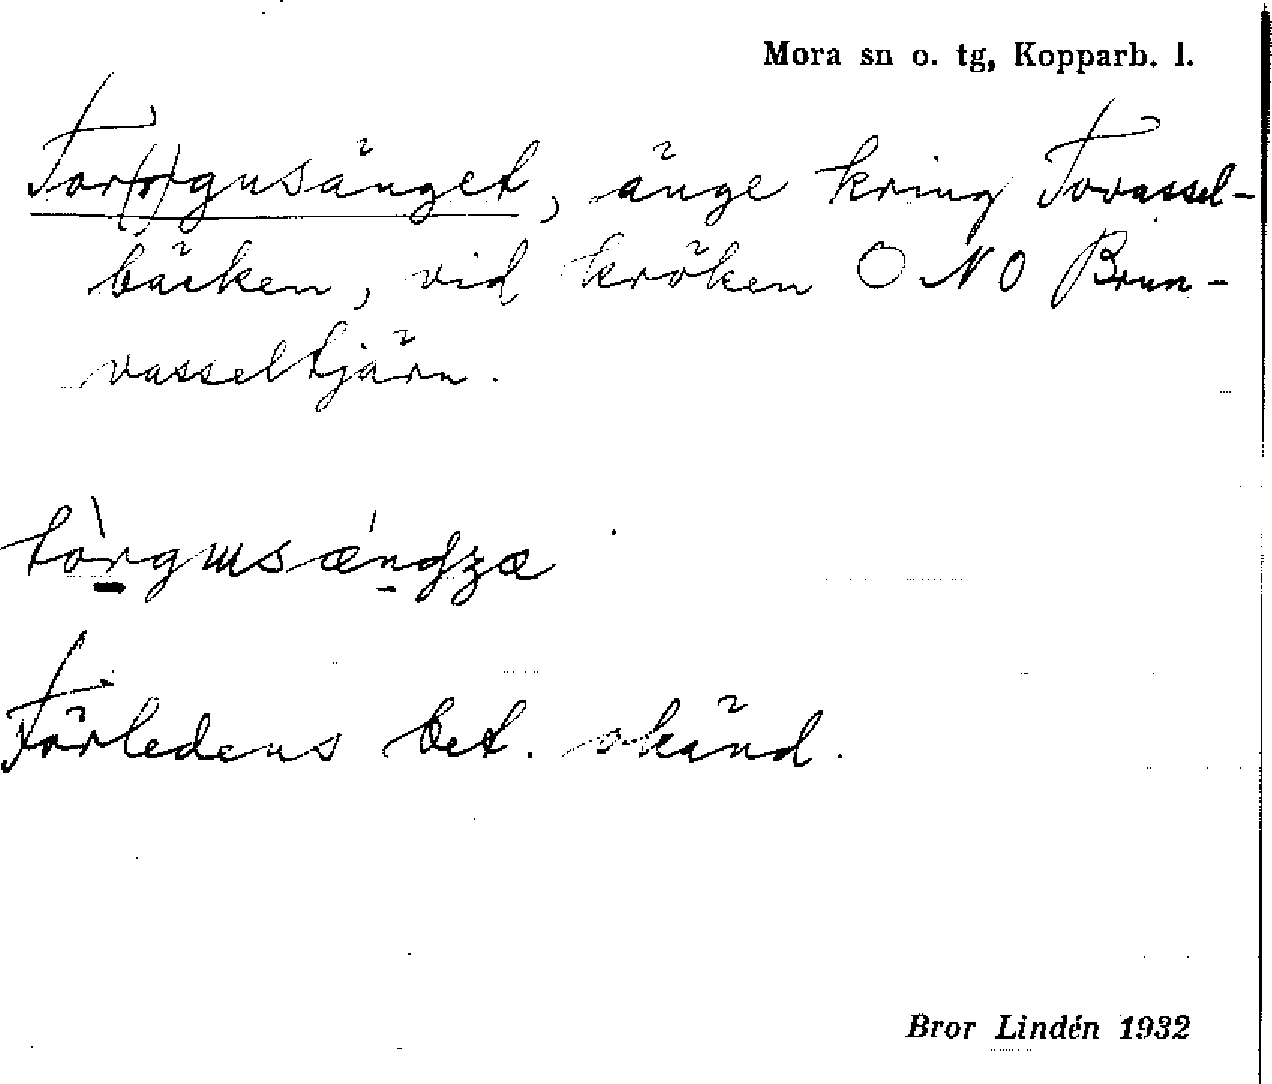 Mora sn o. tg, Kopparb. l.
Tor(n)gusänget, änge kring Tovassel-
bäcken, vid kröken ONO Brun-
vasseltjärn.
tòrgɯsǽndʒæ
Förledens bet. okänd.
Bror Lindén 1932